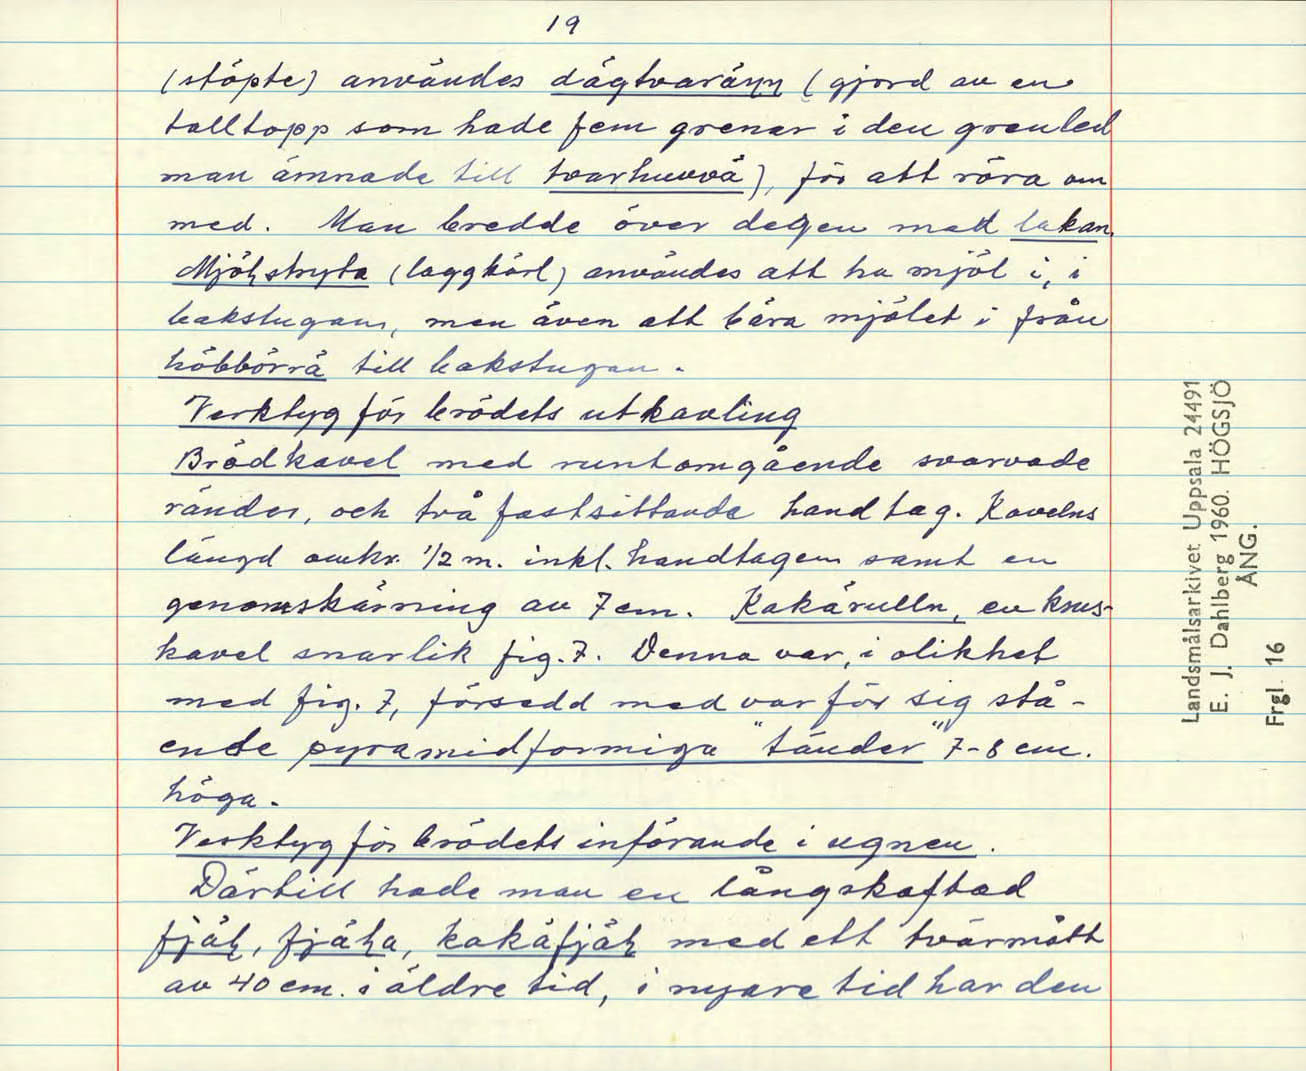 19
(stöpte) användes dägtvaräṇṇ (gjord av en
talltopp som hade fem grenar i den grenled
man ämnade till tvarhuvvä), för att röra om
med. Man bredde över degen med lakan.
Mjöḷstryta (laggkärl) användes att ha mjöl i, i
bakstugan, men även att bära mjölet i från
höbbörrä till bakstugan.
Verktyg för brödets utkavling
Brödkavel med runtomgående svarvade
ränder, och två fastsittande handtag. Kavelns
längd omkr. 1/2 m. inkl. handtagen samt en
genomskärning av 7 cm. Kakärulln, en krus-
kavel snarlik fig. 7. Denna var, i olikhet
med fig. 7, försedd med var för sig stå-
ende pyramidformiga "tänder" 7-8 cm.
höga.
Verktyg för brödets införande i ugnen.
Därtill hade man en långskaftad
fjäḷ, fjäḷa, kakäfjäḷ med ett tvärmått
av 40 cm. i äldre tid, i nyare tid har den
Landsmålsarkivet Uppsala 24491
E. J. Dahlberg 1960. HÖGSJÖ
ÅNG.
Frgl 16